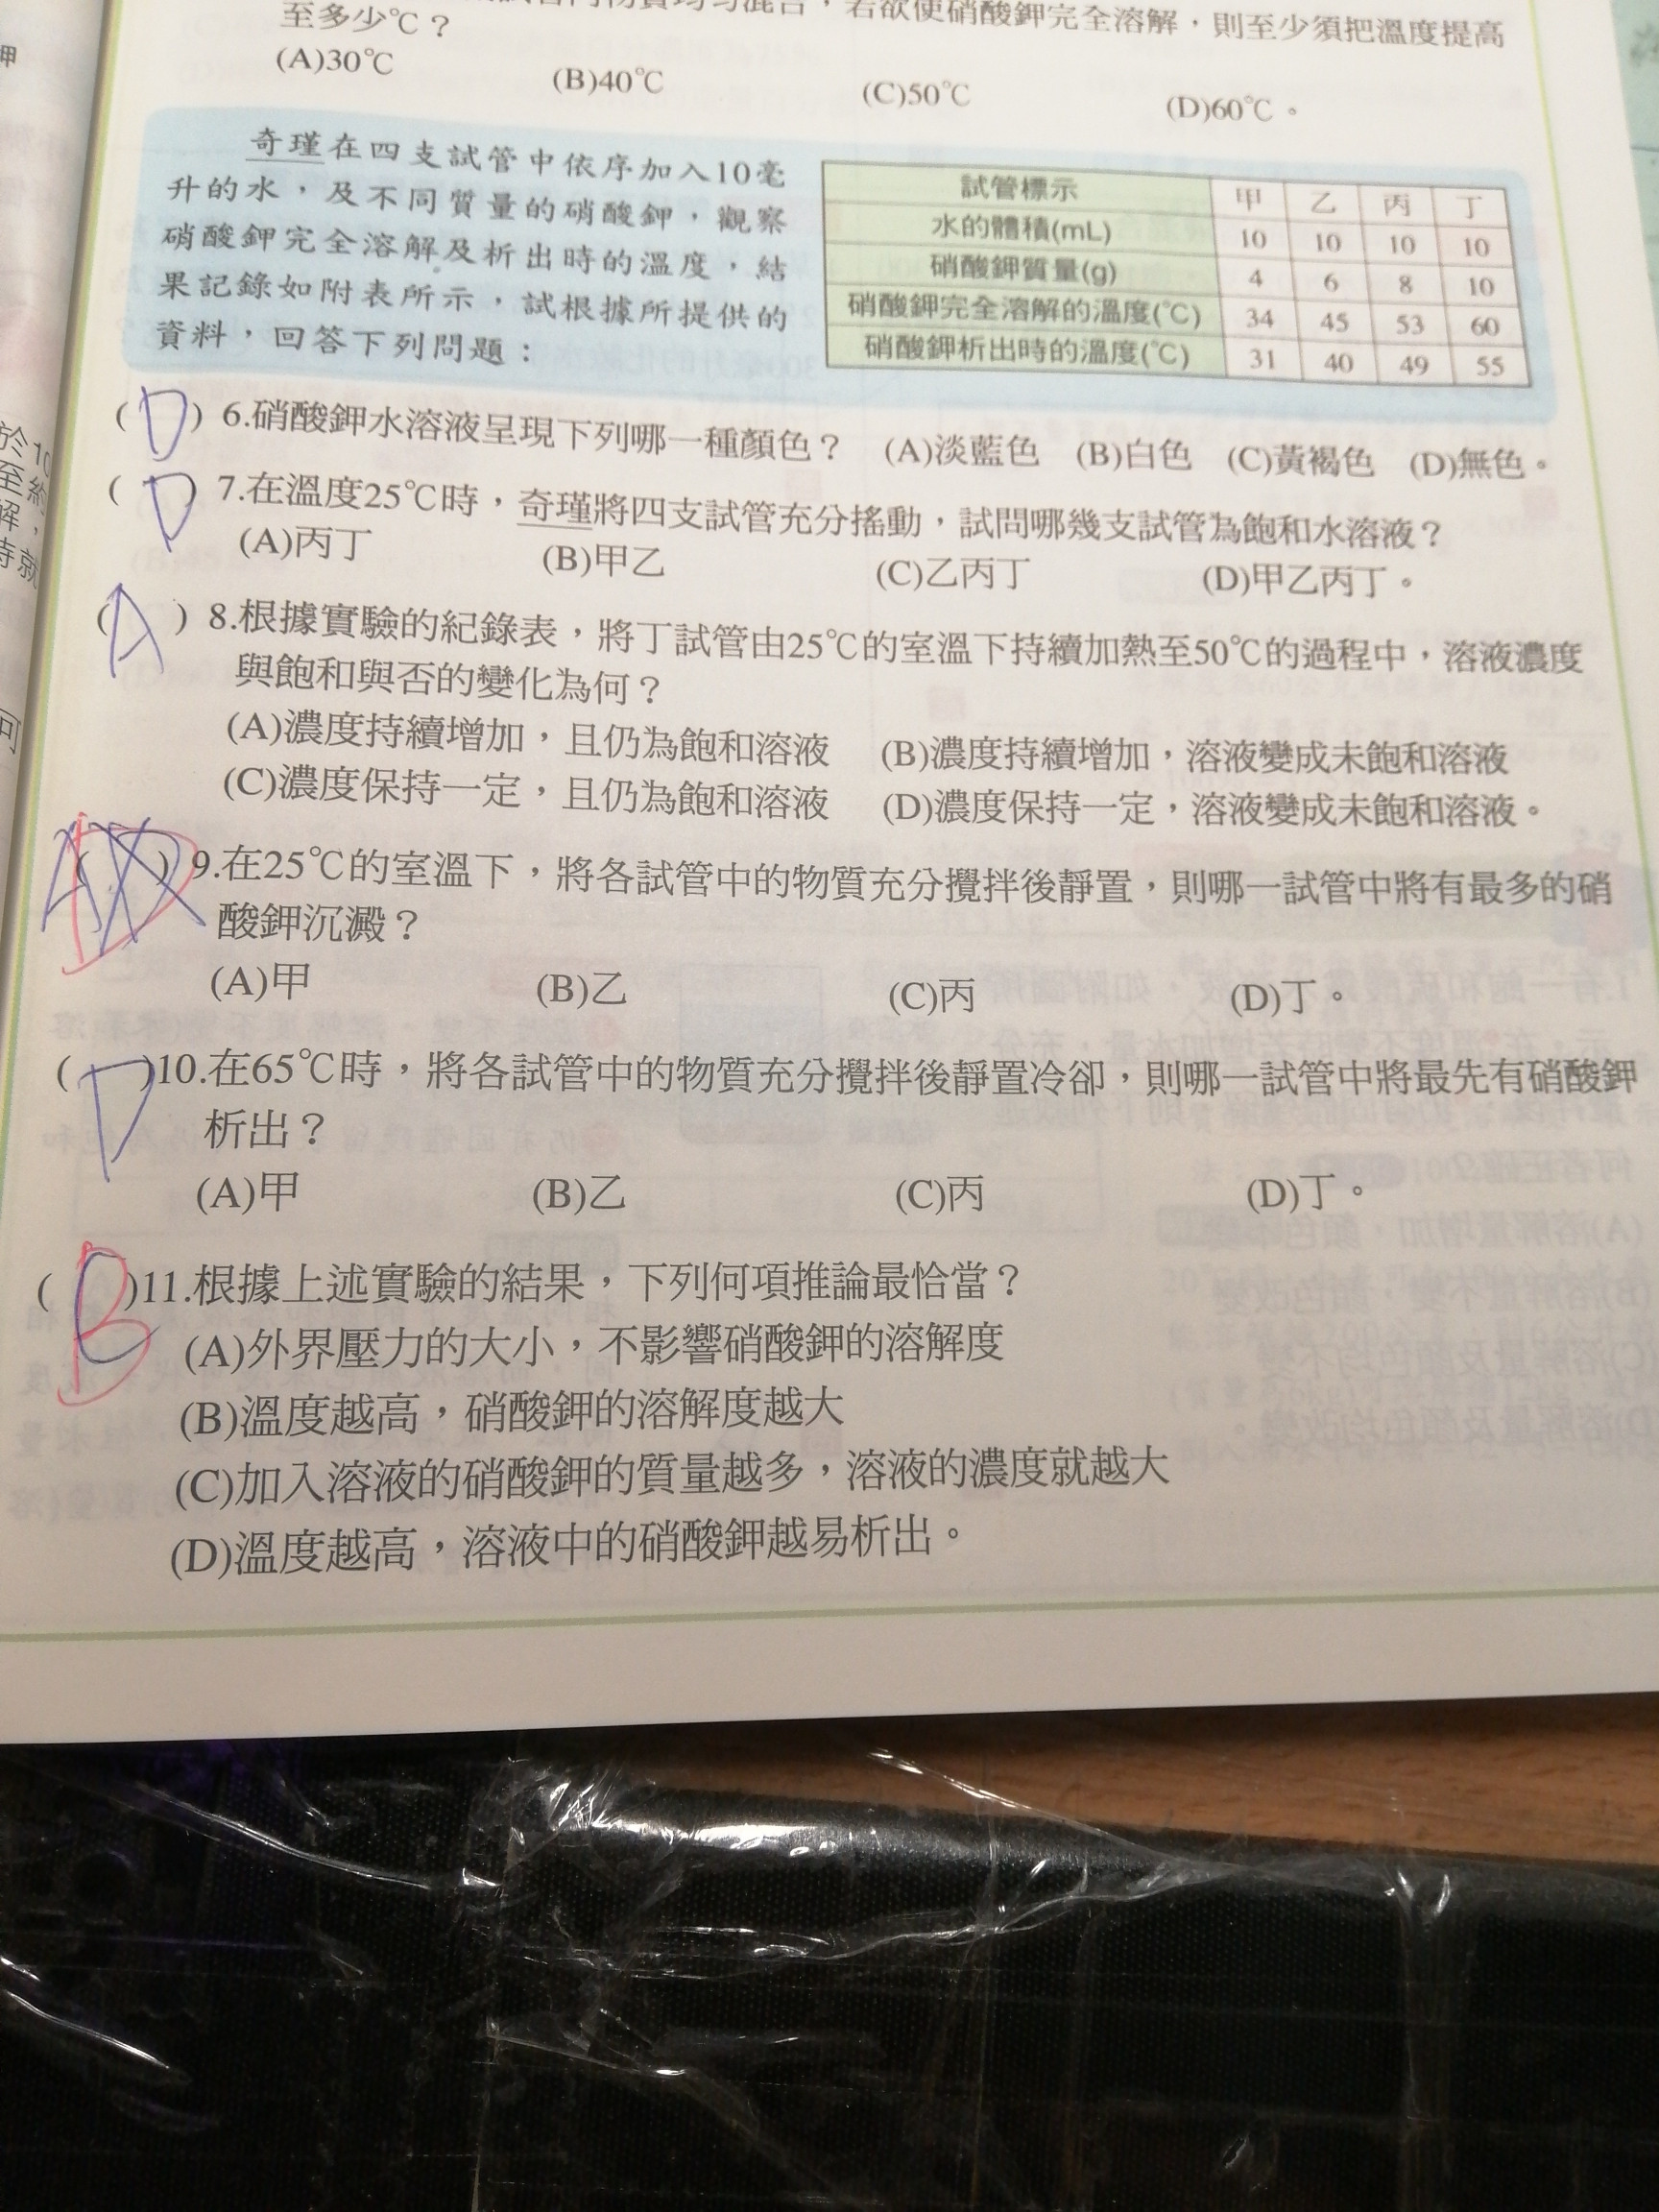 若欲使硝酸鉀完全溶解，則至少須把溫度提高
至多少℃？
(A)30℃ (B)40℃ (C)50℃ (D)60℃。
奇瑾在四支試管中依序加入10毫
升的水，及不同質量的硝酸鉀，觀察
硝酸鉀完全溶解及析出時的溫度，結
果記錄如附表所示，試根據所提供的
資料，回答下列問題：
試管標示 甲 乙 丙 丁
水的體積(mL) 10 10 10 10
硝酸鉀質量(g) 4 6 8 10
硝酸鉀完全溶解的溫度(℃) 34 45 53 60
硝酸鉀析出時的溫度(℃) 31 40 49 55
(D) 6.硝酸鉀水溶液呈現下列哪一種顏色？ (A)淡藍色 (B)白色 (C)黃褐色 (D)無色。
(D) 7.在溫度25℃時，奇瑾將四支試管充分搖動，試問哪幾支試管為飽和水溶液？
(A)丙丁 (B)甲乙 (C)乙丙丁 (D)甲乙丙丁。
(A) 8.根據實驗的紀錄表，將丁試管由25℃的室溫下持續加熱至50℃的過程中，溶液濃度
與飽和與否的變化為何？
(A)濃度持續增加，且仍為飽和溶液 (B)濃度持續增加，溶液變成未飽和溶液
(C)濃度保持一定，且仍為飽和溶液 (D)濃度保持一定，溶液變成未飽和溶液。
(D) 9.在25℃的室溫下，將各試管中的物質充分攪拌後靜置，則哪一試管中將有最多的硝
酸鉀沉澱？
(A)甲 (B)乙 (C)丙 (D)丁。
(D)10.在65℃時，將各試管中的物質充分攪拌後靜置冷卻，則哪一試管中將最先有硝酸鉀
析出？
(A)甲 (B)乙 (C)丙 (D)丁。
(B)11.根據上述實驗的結果，下列何項推論最恰當？
(A)外界壓力的大小，不影響硝酸鉀的溶解度
(B)溫度越高，硝酸鉀的溶解度越大
(C)加入溶液的硝酸鉀的質量越多，溶液的濃度就越大
(D)溫度越高，溶液中的硝酸鉀越易析出。